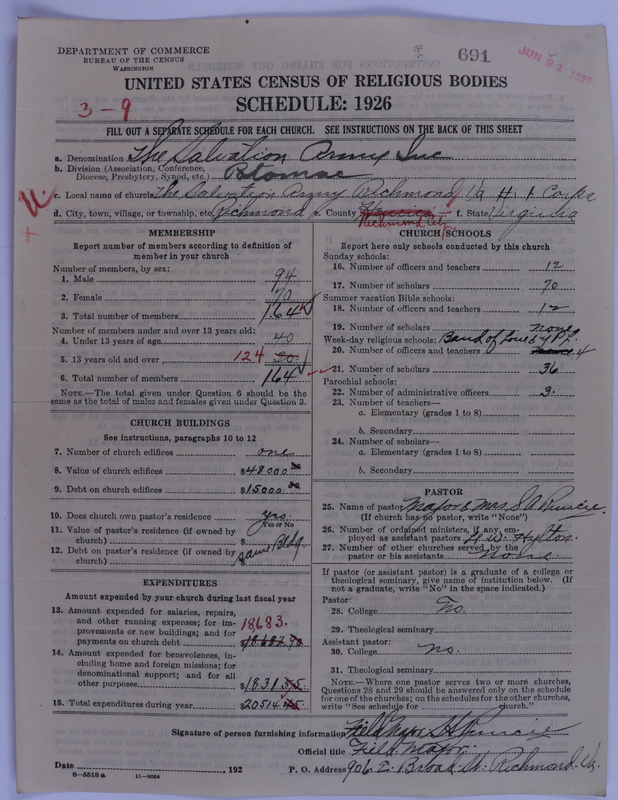 DEPARTMENT OF COMMERCE
BUREAU OF THE CENSUS
WASHINGTON
691
JUN 21 1927
UNITED STATES CENSUS OF RELIGIOUS BODIES
SCHEDULE: 1926
3-9
FILL OUT A SEPARATE SCHEDULE FOR EACH CHURCH. SEE INSTRUCTIONS ON THE BACK OF THIS SHEET
a. Denomination The Salvation Army Inc
b. Division (Association, Conference, Diocese, Presbytery, Synod, etc.) Potomac
c. Local name of church The Salvation Army Richmond Va # 1 Corps
d. City, town, village, or township, etc. Richmond e. County Henrico Richmond City f. State Virginia
MEMBERSHIP
Report number of members according to definition of member in your church
Number of members, by sex:
1. Male 94
2. Female 70
3. Total number of members 164
Number of members under and over 13 years old:
4. Under 13 years of age 40
5. 13 years old and over 124 20
6. Total number of members 164
NOTE.—The total given under Question 6 should be the same as the total of males and females given under Question 3.
CHURCH BUILDINGS
See instructions, paragraphs 10 to 12
7. Number of church edifices one
8. Value of church edifices $48000 00
9. Debt on church edifices $15000 00
10. Does church own pastor's residence yes.
Yes or No
11. Value of pastor's residence (if owned by church) $
12. Debt on pastor's residence (if owned by church) $ same Bldg.
EXPENDITURES
Amount expended by your church during last fiscal year
13. Amount expended for salaries, repairs, and other running expenses; for improvements or new buildings; and for payments on church debt 18683. $18682.90
14. Amount expended for benevolences, including home and foreign missions; for denominational support; and for all other purposes $1831.55
15. Total expenditures during year $20514.45
CHURCH SCHOOLS
Report here only schools conducted by this church
Sunday schools:
16. Number of officers and teachers 12
17. Number of scholars 70
Summer vacation Bible schools:
18. Number of officers and teachers 12
19. Number of scholars none
Week-day religious schools: Band of Love & YPL.
20. Number of officers and teachers 4
21. Number of scholars 36
Parochial schools:
22. Number of administrative officers 3.
23. Number of teachers—
a. Elementary (grades 1 to 8)
b. Secondary
24. Number of scholars—
a. Elementary (grades 1 to 8)
b. Secondary
PASTOR
25. Name of pastor Major & Mrs. S A Runcie.
(If church has no pastor, write "None")
26. Number of ordained ministers, if any, employed as assistant pastors Hylton.
27. Number of other churches served by the pastor or his assistants none.
If pastor (or assistant pastor) is a graduate of a college or theological seminary, give name of institution below. (If not a graduate, write "No" in the space indicated.)
Pastor:
28. College No.
29. Theological seminary
Assistant pastor:
30. College no.
31. Theological seminary
NOTE.—Where one pastor serves two or more churches, Questions 28 and 29 should be answered only on the schedule for one of the churches; on the schedules for the other churches, write "See schedule for church."
Signature of person furnishing information Field Major S A Runcie
Official title Field Major.
Date , 192 P. O. Address 906 E. Broad St. Richmond. Va.
8—5518 a 11—9064